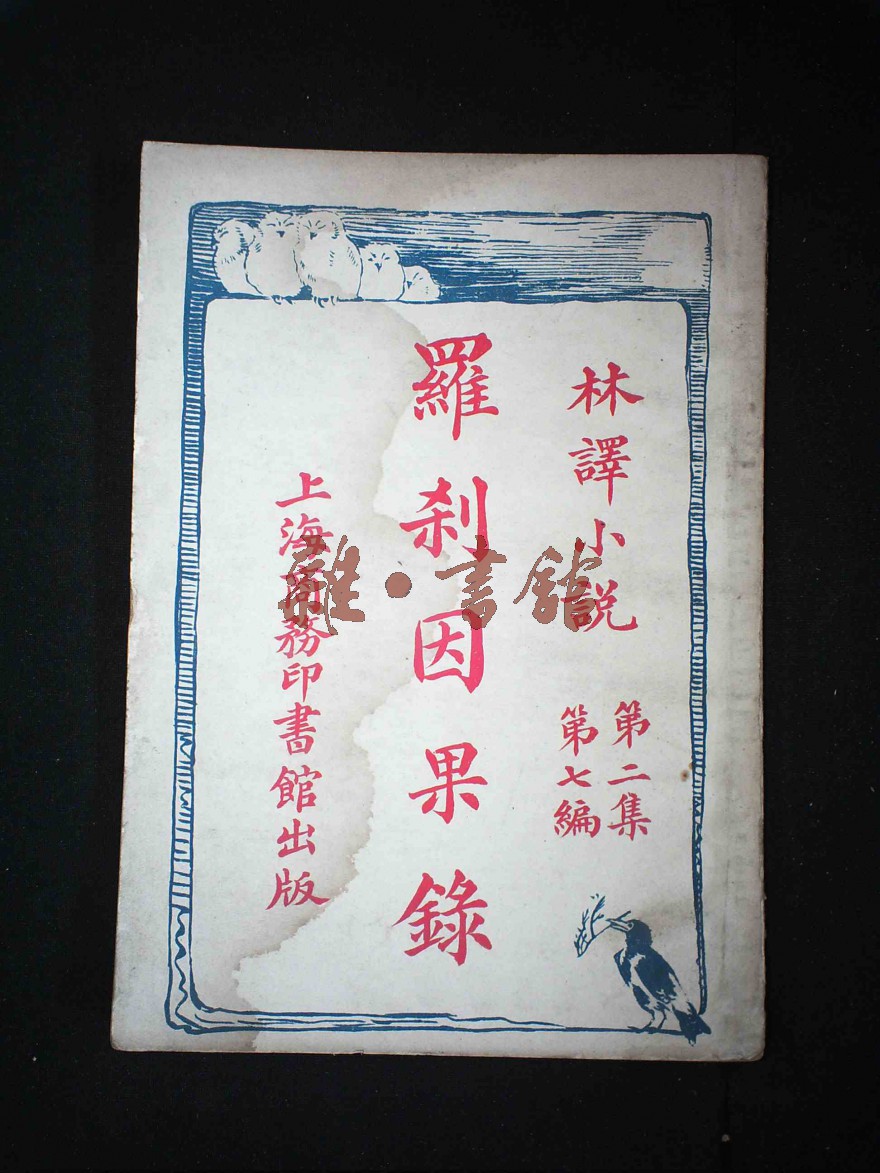 林譯小説
第二集
第七編
羅刹因果錄
上海商務印書館出版
雜·書舘